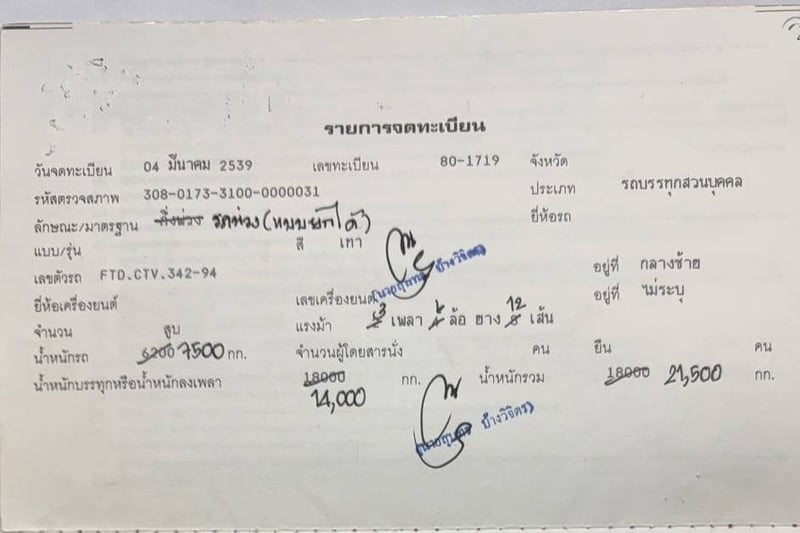 รายการจดทะเบียน
วันจดทะเบียน 04 มีนาคม 2539 เลขทะเบียน 80-1719 จังหวัด
รหัสตรวจสภาพ 308-0173-3100-0000031 ประเภท รถบรรทุกส่วนบุคคล
ลักษณะ/มาตรฐาน กึ่งพ่วง รถพ่วง (แบบยกได้) ยี่ห้อรถ
แบบ/รุ่น สี เทา
เลขตัวรถ FTD.CTV.342-94 อยู่ที่ กลางซ้าย
ยี่ห้อเครื่องยนต์ เลขเครื่องยนต์ อยู่ที่ ไม่ระบุ
จำนวน สูบ แรงม้า 3 เพลา 6 ล้อ ยาง 8 12 เส้น
น้ำหนักรถ 6200 7500 กก. จำนวนผู้โดยสารนั่ง คน ยืน คน
น้ำหนักบรรทุกหรือน้ำหนักลงเพลา 18000 กก. น้ำหนักรวม 18000 21,500 กก.
14,000
ช้างวิจิตร)